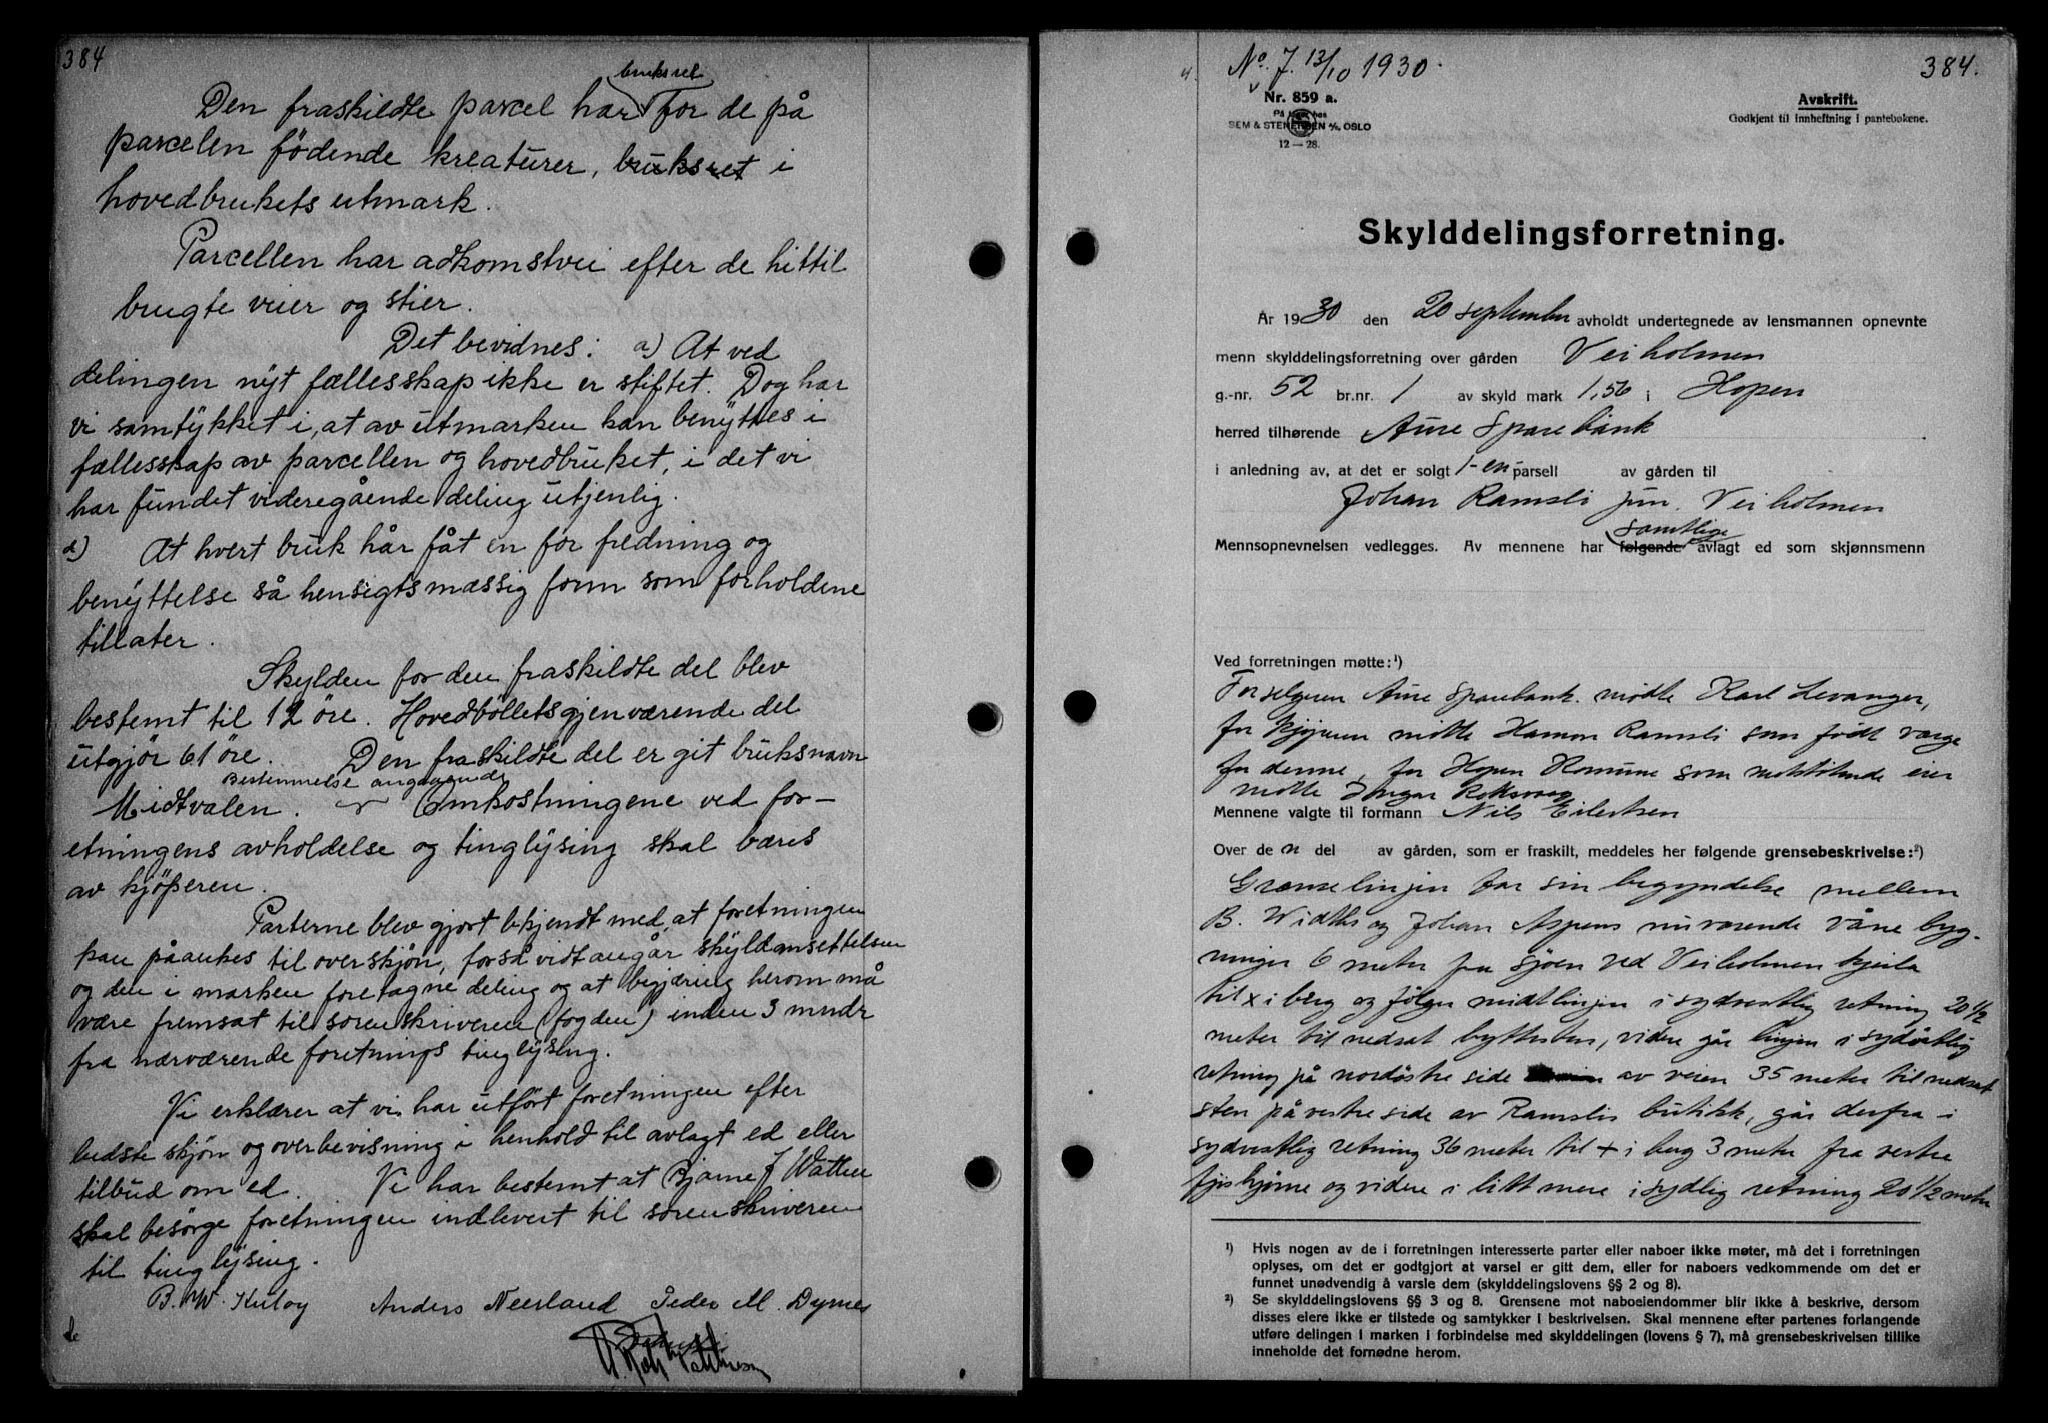 384
bruksret
Den fraskildte parcel har for de på
parcelen födende kreaturer, bruksret i
hovedbrukets utmark.
Parcellen har adkomstvei efter de hittil
brugte veier og stier.
Det bevidnes: a) At ved
delingen nyt fællesskap ikke er stiftet. Dog har
vi samtykket i, at av utmarken kan benyttes i
fællesskap av parcellen og hovedbruket, i det vi
har fundet videregående deling utjenlig.
d) At hvert bruk hår fåt en for fredning og
benyttelse så hensigtsmæssig form som forholdene
tillater.
Skylden for den fraskildte del blev
bestemt til 12 öre. Hovedböllets gjenværende del
utgjör 61 öre. Den fraskildte del er git bruksnavn
Bestemmelse angaaende
Midtvalen. Omkostningene ved for-
etningens avholdelse og tinglysing skal bæres
av kjöperen.
Parterne blev gjort bekjendt med, at foretningen
kan påankes til overskjön, forså vidt angår skyldansettelsen
og den i marken foretagne deling og at begjæring herom må
være fremsat til sorenskriveren (fogden) inden 3 mndr
fra nærværende foretnings tinglysing.
Vi erklærer at vi har utfört foretningen efter
bedste skjön og overbevisning i henhold til avlagt ed eller
tilbud om ed. Vi har bestemt at Bjarne J Watten
skal besörge foretningen indlevert til sorenskriveren
til tinglysing.
B. W. Kuløy Anders Neerland Peder M. Dyrnes
No 7. 13/10 1930.
384.
Nr. 859 a.
På lager hos
SEM & STENERSEN A/S, OSLO
12 — 28.
Avskrift.
Godkjent til innheftning i pantebøkene.
Skylddelingsforretning.
År 1930 den 20 september avholdt undertegnede av lensmannen opnevnte
menn skylddelingsforretning over gården Veiholmen
g.-nr. 52 br.nr. 1 av skyld mark 1,56 i Hopen
herred tilhørende Aure Sparebank
i anledning av, at det er solgt 1-en parsell av gården til
Johan Ramsli jun. Veiholmen
samtlige
Mennsopnevnelsen vedlegges. Av mennene har følgende avlagt ed som skjønnsmenn
Ved forretningen møtte:¹)
For selgeren Aure Sparebank mødte Karl Levanger,
for kjøperen møtte Hamon Ramsli som født verge
for denne, for Hopen Komune som nuværende eier
møtte Ingar Roksvaag
Mennene valgte til formann Nils Eilertsen
Over den del av gården, som er fraskilt, meddeles her følgende grensebeskrivelse:²)
Grænselinjen tar sin begyndelse mellem
B. Widths og Johan Aspens nuværende våne byg-
ninger 6 meter fra sjøen ved Veiholmen kjeila
til x i berg og følger midtlinjen i sydvestlig retning 20 1/2
meter til nedsat byttesten, videre går linjen i sydøstlig
retning på nordøstre side av veien 35 meter til nedsat
sten på vestre side av Ramslis butikk, går derfra i
sydvestlig retning 36 meter til + i berg 3 meter fra vestre
fjøshjørne og videre i litt mere sydlig retning 20 1/2 meter
¹) Hvis nogen av de i forretningen interesserte parter eller naboer ikke møter, må det i forretningen
oplyses, om det er godtgjort at varsel er gitt dem, eller for naboers vedkommende om det er
funnet unødvendig å varsle dem (skylddelingslovens §§ 2 og 8).
²) Se skylddelingslovens §§ 3 og 8. Grensene mot naboeiendommer blir ikke å beskrive, dersom
disses eiere ikke er tilstede og samtykker i beskrivelsen. Skal mennene efter partenes forlangende
utføre delingen i marken i forbindelse med skylddelingen (lovens § 7), må grensebeskrivelsen tillike
inneholde det fornødne herom.